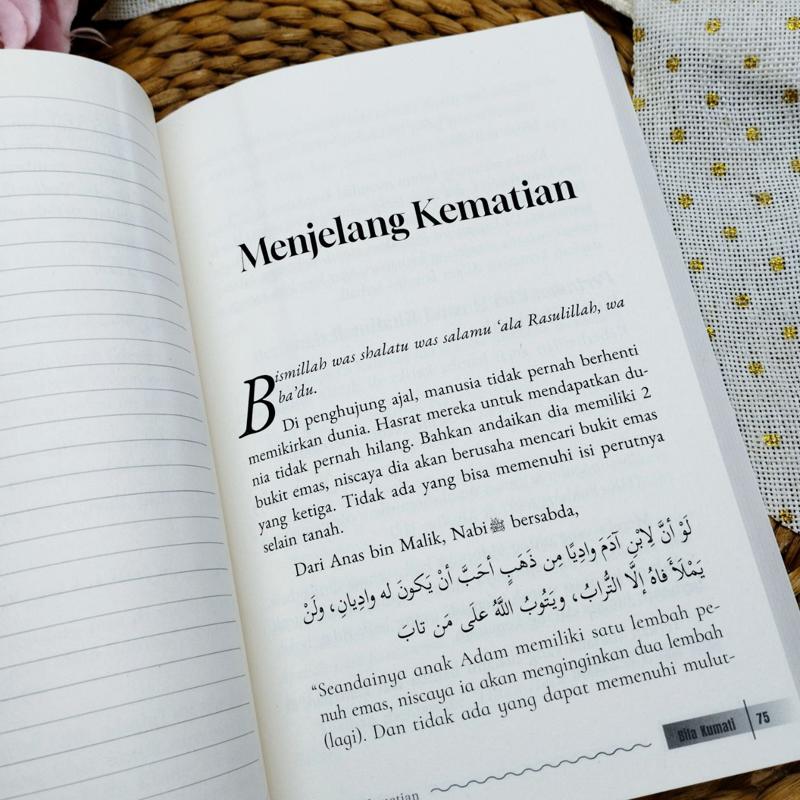 Menjelang Kematian
Bismillah was shalatu was salamu ‘ala Rasulillah, wa
ba’du.
Di penghujung ajal, manusia tidak pernah berhenti
memikirkan dunia. Hasrat mereka untuk mendapatkan du-
nia tidak pernah hilang. Bahkan andaikan dia memiliki 2
bukit emas, niscaya dia akan berusaha mencari bukit emas
yang ketiga. Tidak ada yang bisa memenuhi isi perutnya
selain tanah.
Dari Anas bin Malik, Nabi ﷺ bersabda,
لَوْ أنَّ لِابْنِ آدَمَ وادِيًا مِن ذَهَبٍ أحَبَّ أنْ يَكونَ له وادِيانِ، ولَنْ
يَمْلَأَ فاهُ إلَّا التُّرابُ، ويَتُوبُ اللَّهُ علَى مَن تابَ
“Seandainya anak Adam memiliki satu lembah pe-
nuh emas, niscaya ia akan menginginkan dua lembah
(lagi). Dan tidak ada yang dapat memenuhi mulut-
Bila Kumati | 75